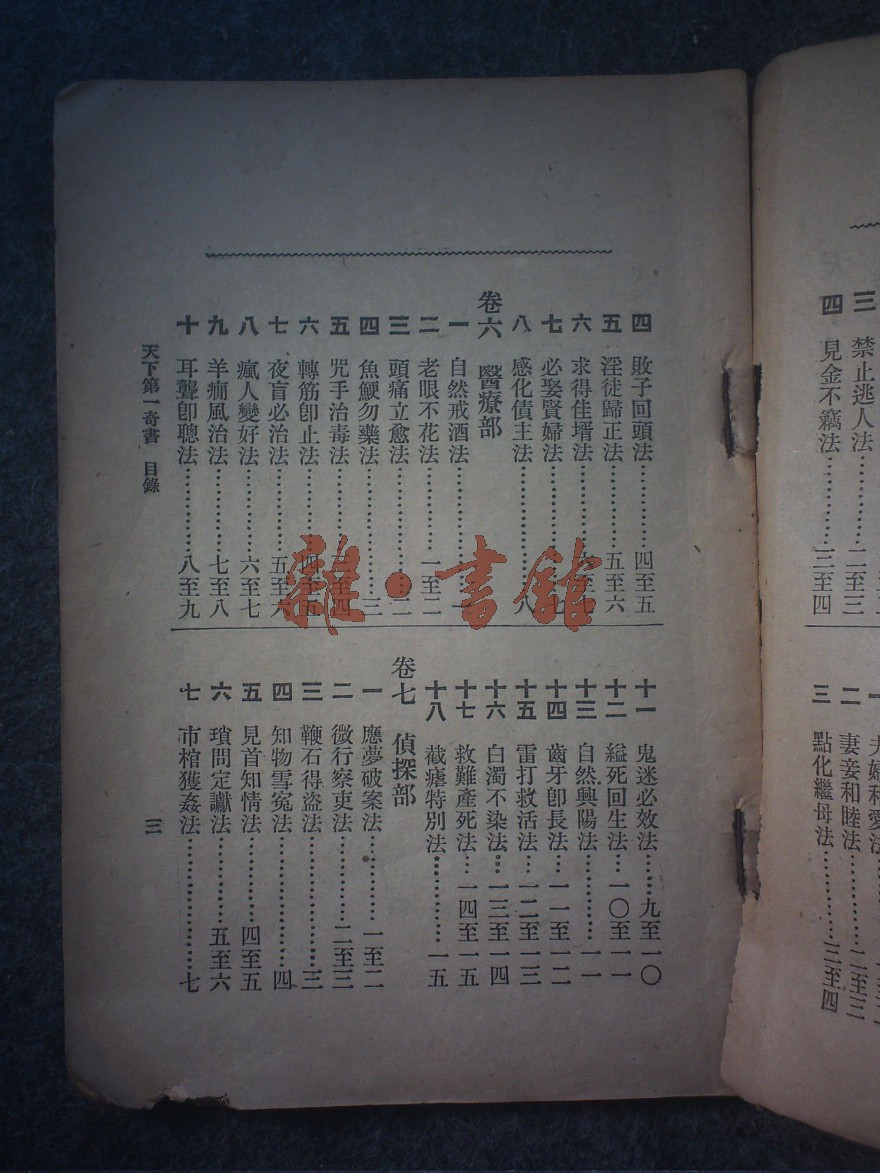 三 禁止逃人法…………二至三
四 見金不竊法…………三至四
夫婦和愛法
二 妻妾和睦法…………二至三
三 點化繼母法…………三至四
四 敗子回頭法…………四至五
五 淫徒歸正法…………五至六
六 求得佳壻法…………至七
七 必娶賢婦法…………七
八 感化債主法…………八
卷六 醫療部
一 自然戒酒法…………一
二 老眼不花法…………一至二
三 頭痛立愈法…………二
四 魚鯁勿藥法…………三
五 咒手治毒法…………三至四
六 轉筋卽止法…………四至五
七 夜盲必治法…………五至六
八 瘋人變好法…………六至七
九 羊癇風治法…………七至八
十 耳聾卽聰法…………八至九
十一 鬼迷必效法……九至一〇
十二 縊死回生法…一〇至一一
十三 自然興陽法…………一一
十四 齒牙卽長法…一一至一二
十五 雷打救活法…一二至一三
十六 白濁不染法…一三至一四
十七 救難產死法…一四至一五
十八 截瘧特別法…………一五
卷七 偵探部
一 應夢破案法…………一至二
二 微行察吏法…………二至三
三 鞭石得盜法…………三
四 知物雪冤法…………四
五 見首知情法…………四至五
六 瑣問定讞法…………五至六
七 市棺獲姦法…………七
天下第一奇書 目錄
三
雜·書館